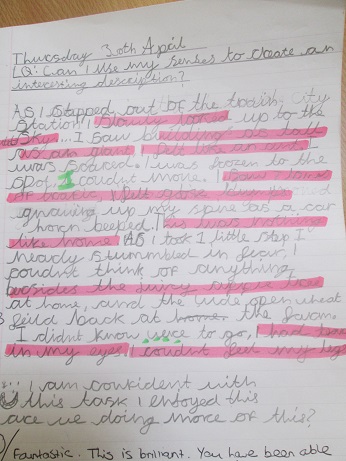 Thursday 30th April
LQ: Can I use my senses to create an
interesting description?
As I stepped out of the tradish City
Station I slowly looked up to the
sky... I saw buildings as tall
as an giant. I felt like an ant. I
was scared. I was frozen to the
spot. I coudnt move. I
of traffic, I felt goose
gnawing up my spine as a car
horn beeped. This was nothing
like home. As I took 1 little step I
neady stumbled in fear, I
coudnt think of anything
besides the
at home, and the wide open wheat
feild back at home the farm.
I didnt know were to go, I had tears
in my eyes I coudnt feel my legs
I am confident with
this task I enjoyed this
are we doing more of this?
Fantastic. This is brilliant. You have been able